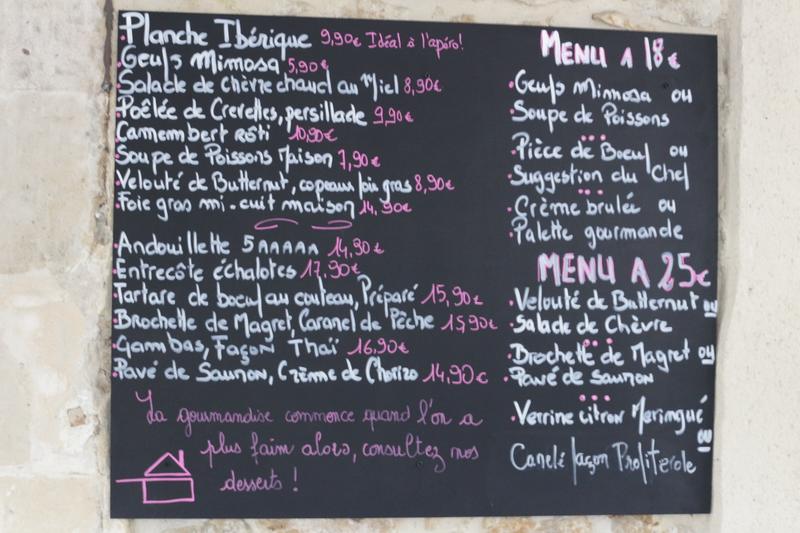 Planche Ibérique 9,90€ Idéal à l'apéro!
Oeufs Mimosa 5,90€
Salade de chèvre chaud au Miel 8,90€
Poêlée de Crevettes, persillade 9,90€
Camembert rôti 10,90€
Soupe de Poissons Maison 7,90€
Velouté de Butternut, copeaux foie gras 8,90€
Foie gras mi-cuit maison 14,90€
Andouillette 5AAAAA 14,90€
Entrecôte échalotes 17,90€
Tartare de boeuf au couteau, Préparé 15,90€
Brochette de Magret, Caramel de Pêche 15,90€
Gambas, Façon Thaï 16,90€
Pavé de Saumon, Crème de Chorizo 14,90€
La gourmandise commence quand l'on a
plus faim alors, consultez nos
desserts !
MENU A 18€
Oeufs Mimosa ou
Soupe de Poissons
Pièce de Boeuf ou
Suggestion du Chef
Crème brulée ou
Palette gourmande
MENU A 25€
Velouté de Butternut ou
Salade de Chèvre
Brochette de Magret ou
Pavé de saumon
Verrine citron Meringué
ou
Canelé façon Profiterole